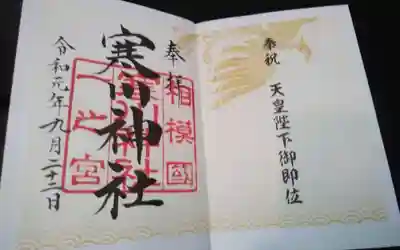 奉祝
天皇陛下御即位
奉拝
寒川神社
相模國
寒川神社
一之宮
令和元年九月二十二日